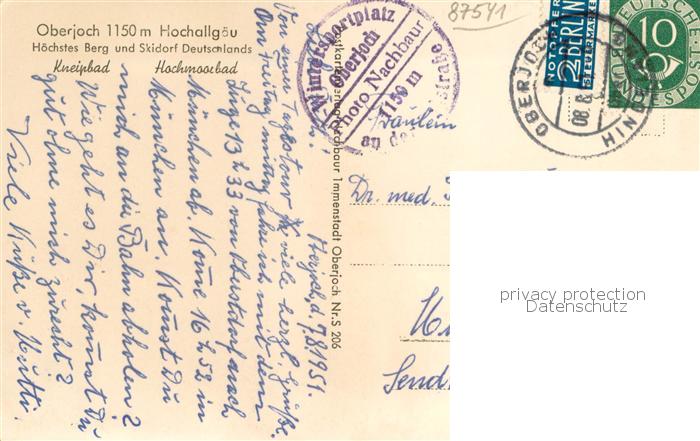 Oberjoch 1150 m Hochallgäu
Höchstes Berg und Skidorf Deutschlands
Kneippbad Hochmoorbad
87541
Wintersportplatz
Oberjoch
Photo Nachbaur
1150 m
an der
NOTOPFER
2 BERLIN
STEUERMARKE
DEUTSCHE
10
BUNDESPOST
OBERJOCH
08.8.
Postkartenverlag Nachbaur Immenstadt Oberjoch Nr. S 206
Oberjoch, d. 7.8.1951.
Von einer Tagestour Dir viele herzl. Grüße.
Am Freitag mittag fahre ich mit dem
Zug 13 h 33 von Oberstdorf nach
München ab. Komme 16 h 52 in
München an. Kannst Du
mich an die Bahn abholen?
Wie geht es Dir, kommst Du
gut ohne mich zurecht?
Viele Küße v. Mutti.
Fräulein
Dr. med.
privacy protection
Datenschutz